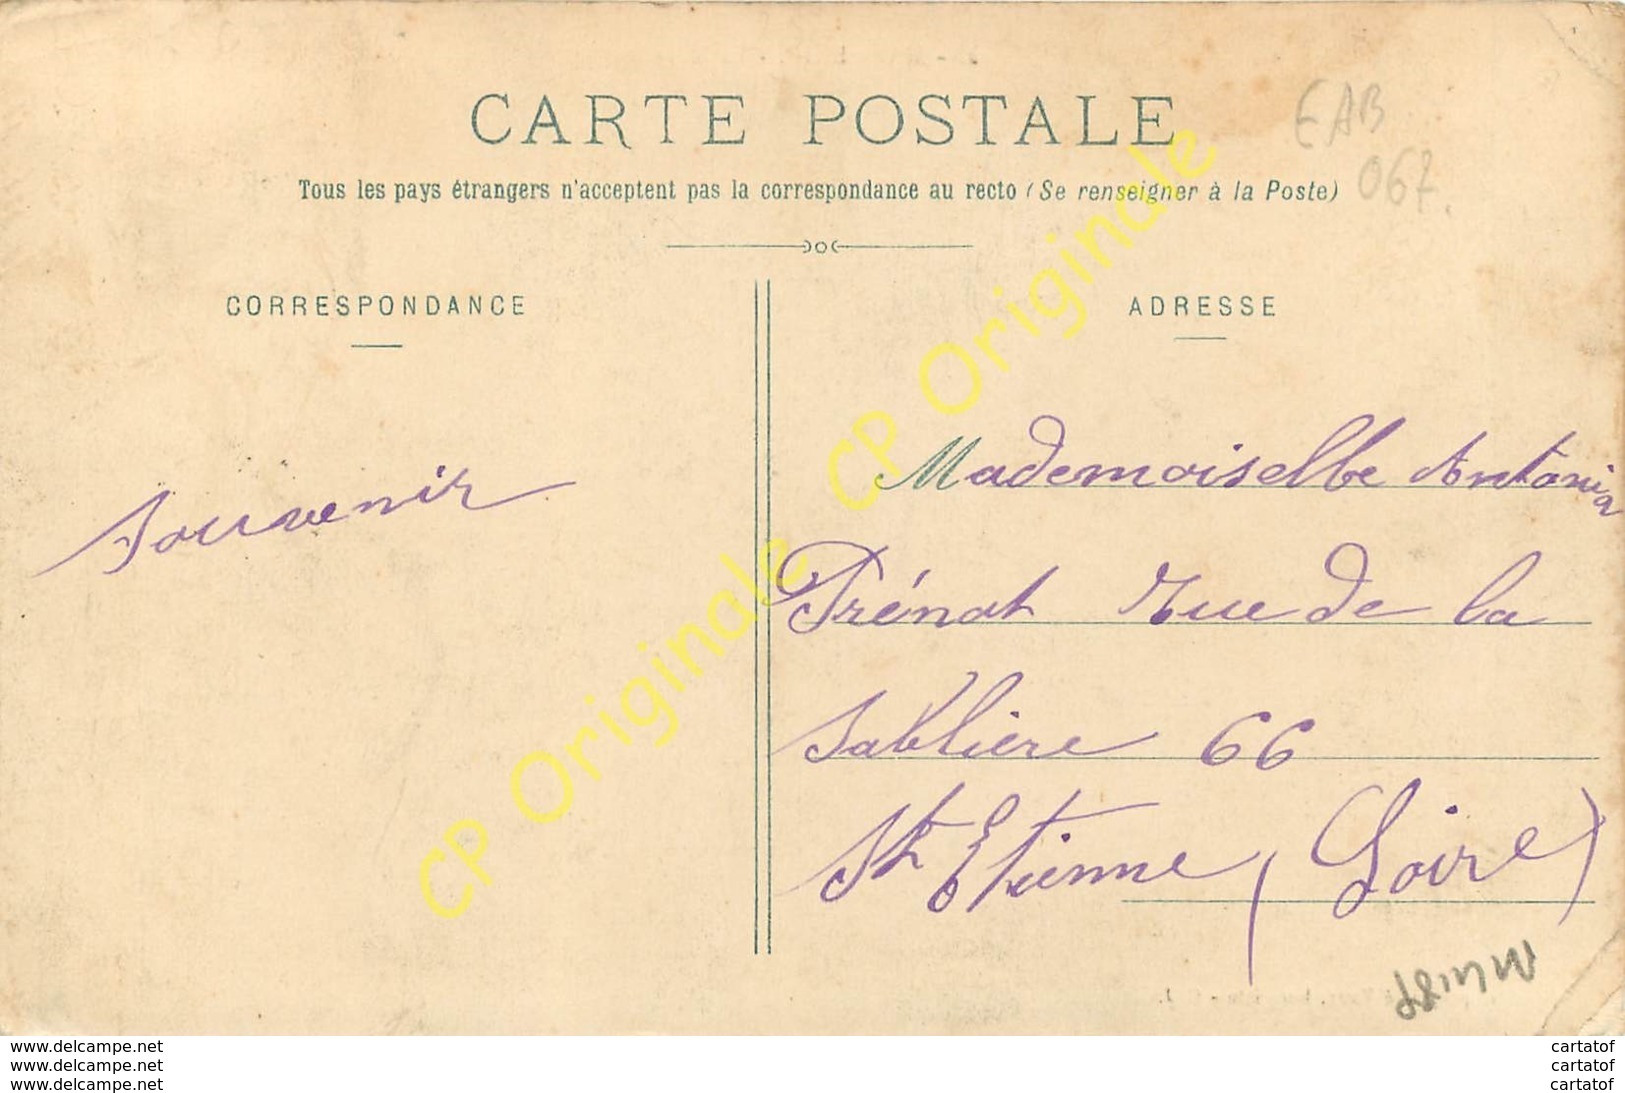 CARTE POSTALE
EAB
067.
Tous les pays étrangers n'acceptent pas la correspondance au recto (Se renseigner à la Poste)
CORRESPONDANCE
ADRESSE
Souvenir
Mademoiselle Antonia
Prénat Rue de la
Sablière 66
St Etienne (Loire)
CP Originale
CP Originale
www.delcampe.net
www.delcampe.net
www.delcampe.net
cartatof
cartatof
cartatof